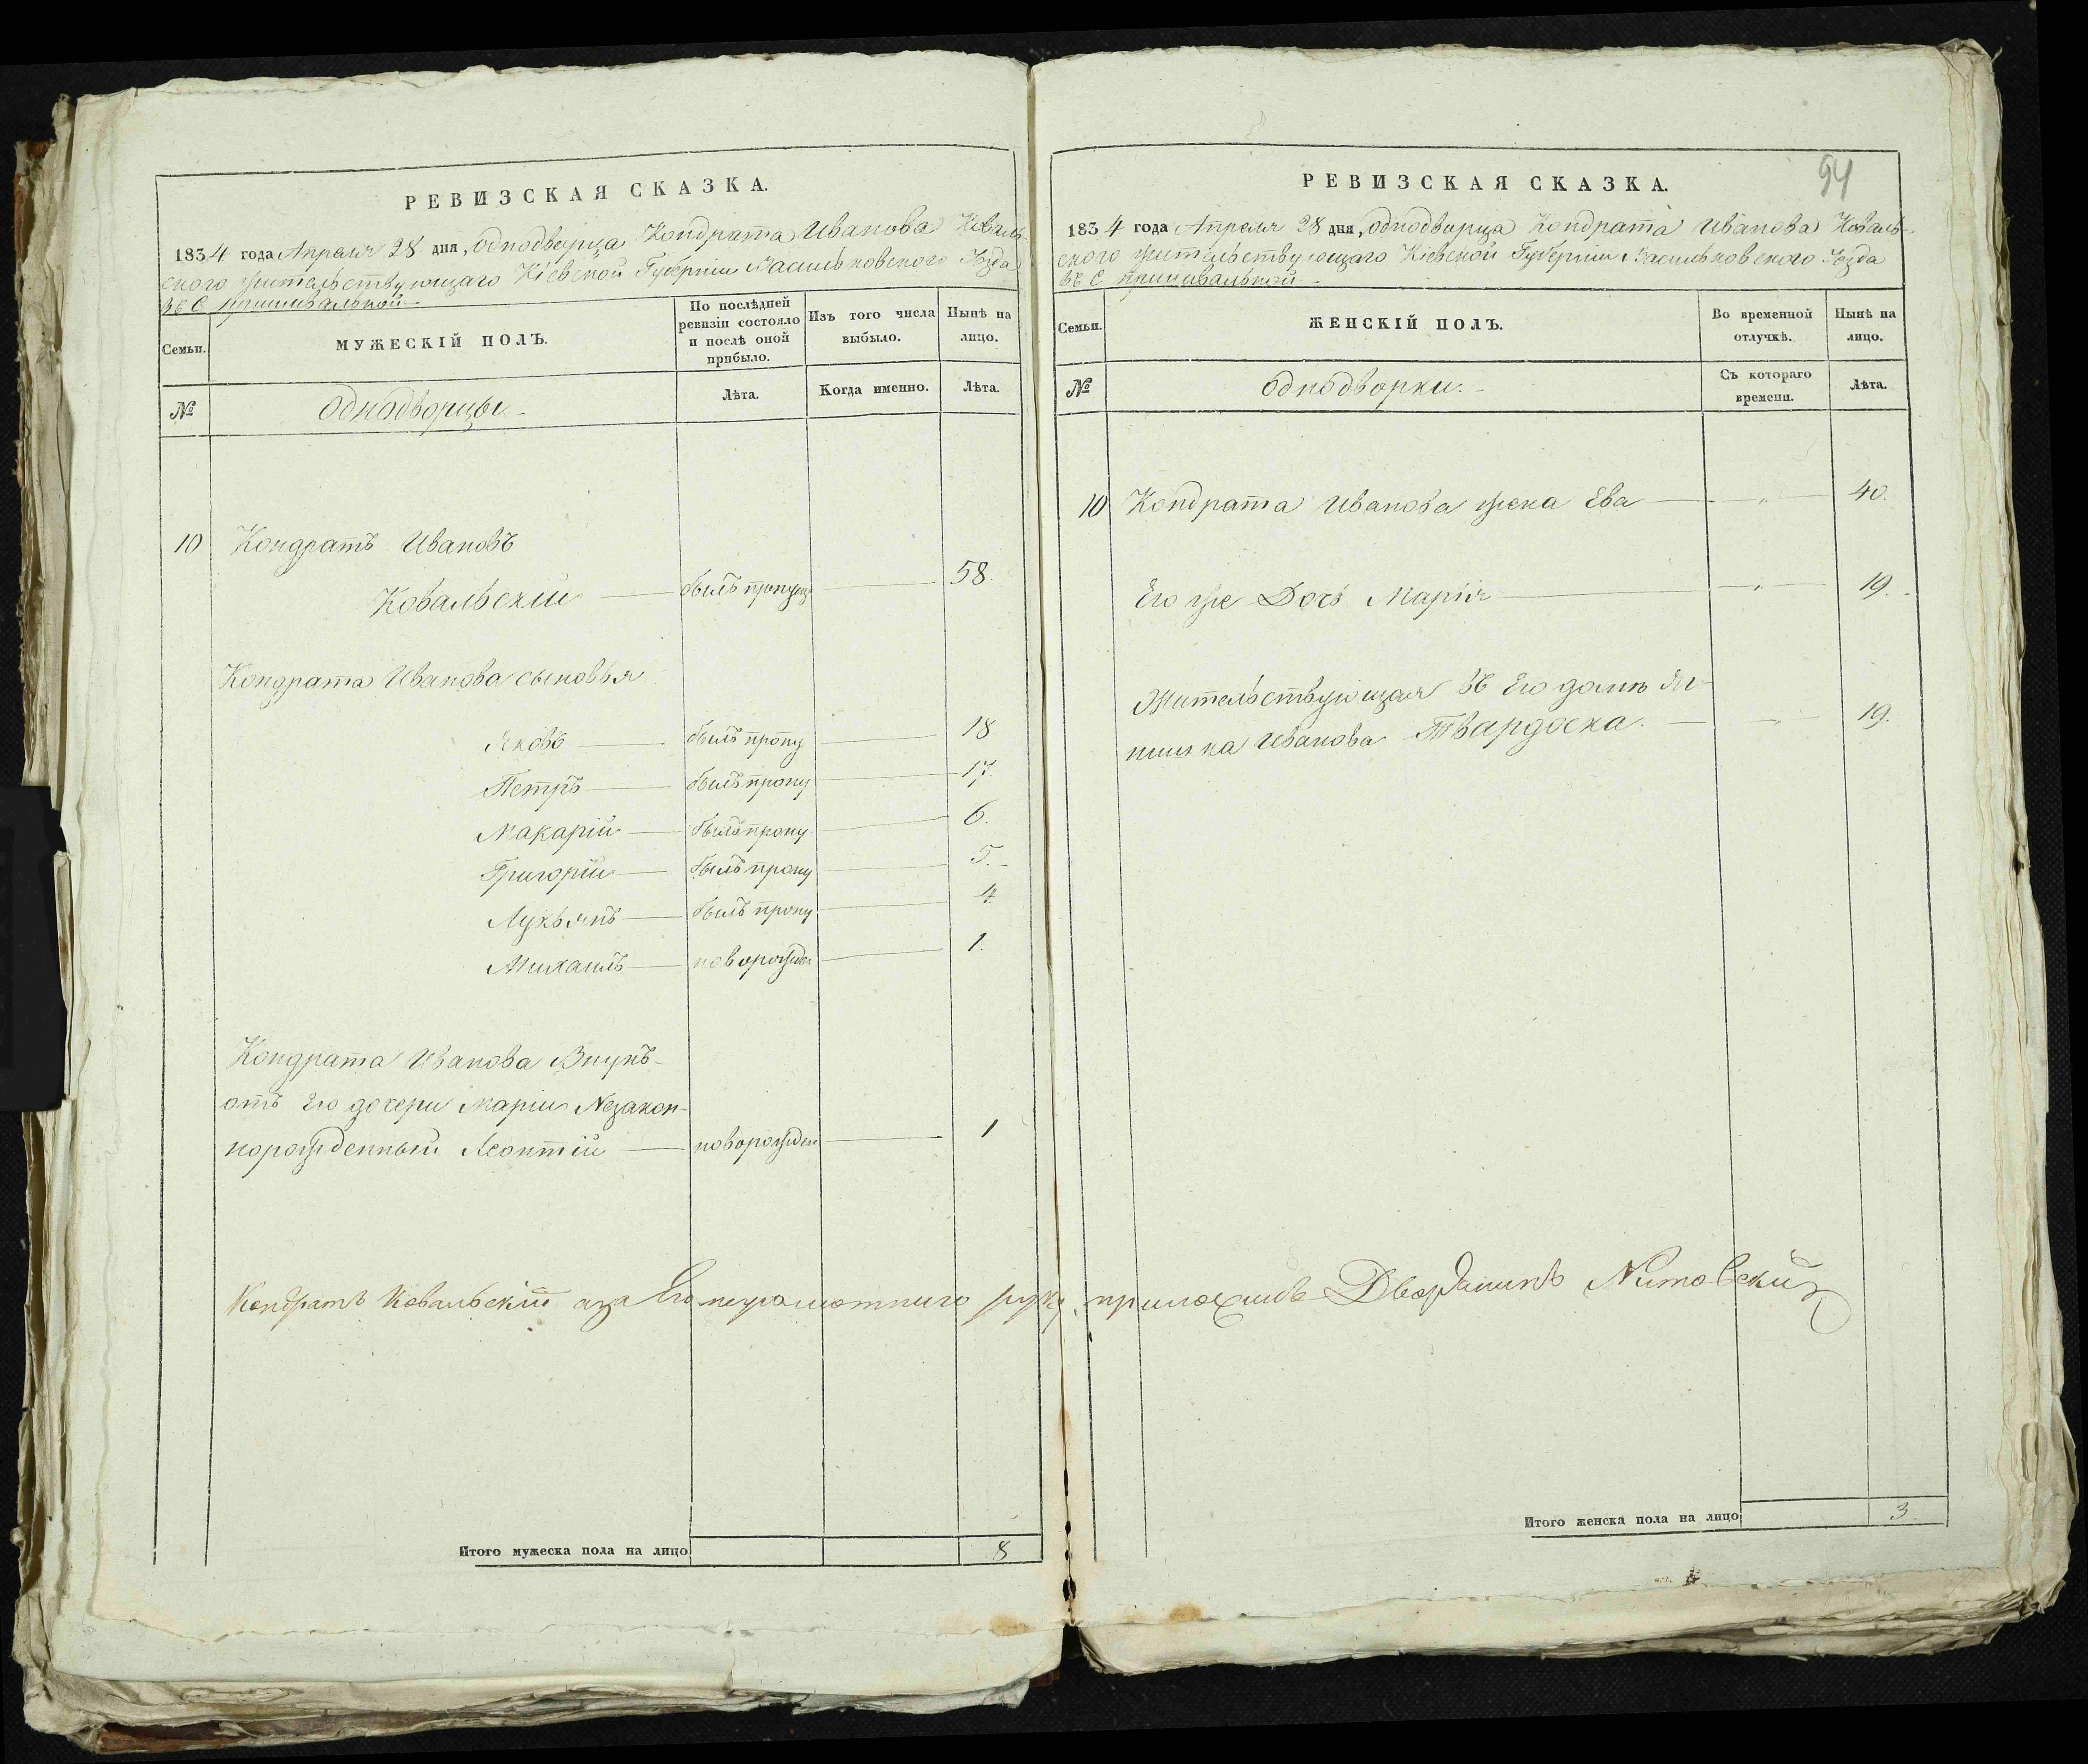 РЕВИЗСКАЯ СКАЗКА.
1834 года Апреля 28 дня, однодворца Кондрата Иванова Коваль-
ского жительствующаго Кіевской Губерніи Васильковского Уезда
въ С
Семьи.
МУЖЕСКІЙ ПОЛЪ.
По послѣдней ревизіи состояло и послѣ оной прибыло.
Изъ того числа выбыло.
Нынѣ на лицо.
№
однодворцы.
Лѣта.
Когда именно.
Лѣта.
10 Кондратъ Ивановъ
Ковальскій — былъ пропущ — 58.
Кондрата Иванова сыновья
Яковъ — былъ пропу — 18.
Петръ — былъ пропу — 17.
Макарій — былъ пропу — 6.
Григорій — былъ пропу — 5.
Лукьянъ — былъ пропу — 4.
Михаилъ — новорожден — 1.
Кондрата Иванова Внукъ
отъ Его дочери Маріи Незакон-
норожденный Леонтій — новорожден — 1
Итого мужеска пола на лицо 8
94
РЕВИЗСКАЯ СКАЗКА.
1834 года Апреля 28 дня, однодворца Кондрата Иванова Коваль-
ского жительствующаго Кіевской Губерніи Васильковского Уезда
въ С
Семьи.
ЖЕНСКІЙ ПОЛЪ.
Во временной отлучкѣ.
Нынѣ на лицо.
№
однодворки.
Съ котораго времени.
Лѣта.
10 Кондрата Иванова жена Ева — „ — 40.
Его же Дочь Марія — „ — 19.
Жительствующая въ Его доме
Иванова — „ — 19.
Кондратъ Ковальскій аза Его неграмотнего руку приложилъ Дворянинъ
Итого женска пола на лицо 3.